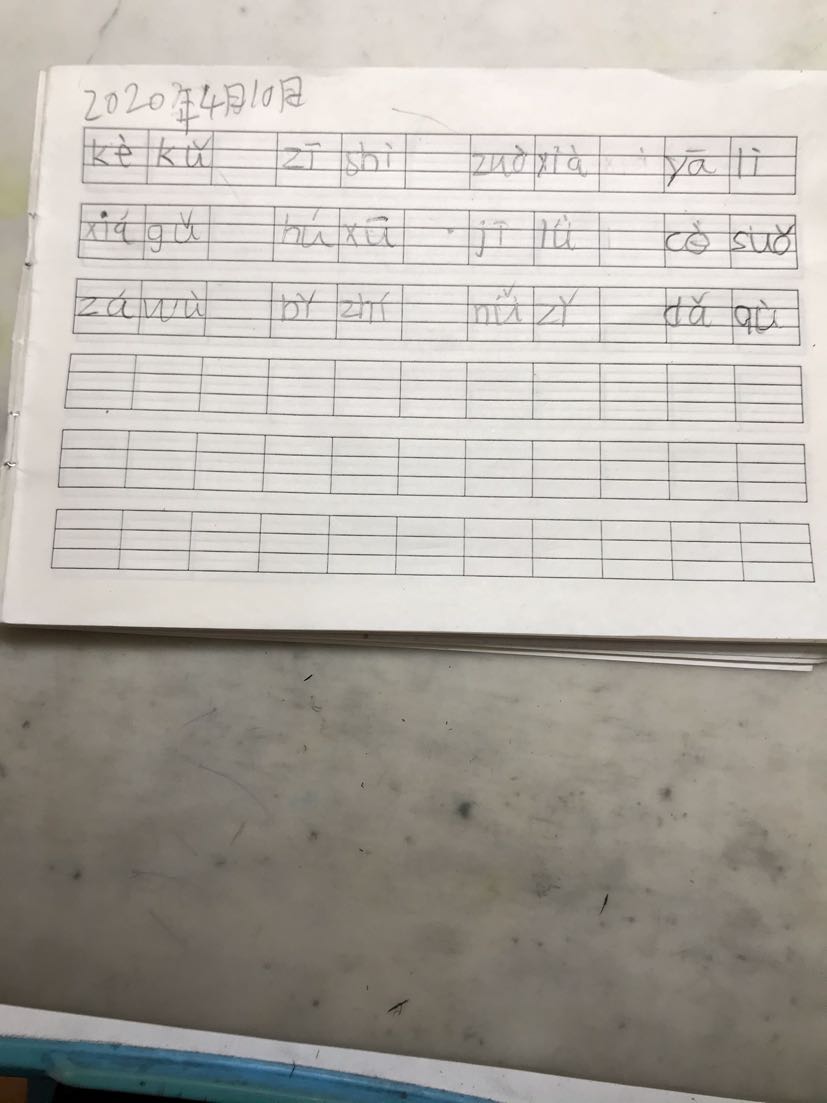 2020年4月10日
kè kǔ zī shì zuò xià yā lì
xiá gǔ hú xū jī lǜ cè suǒ
zá wù bǐ zhí nǚ zǐ dǎ qù